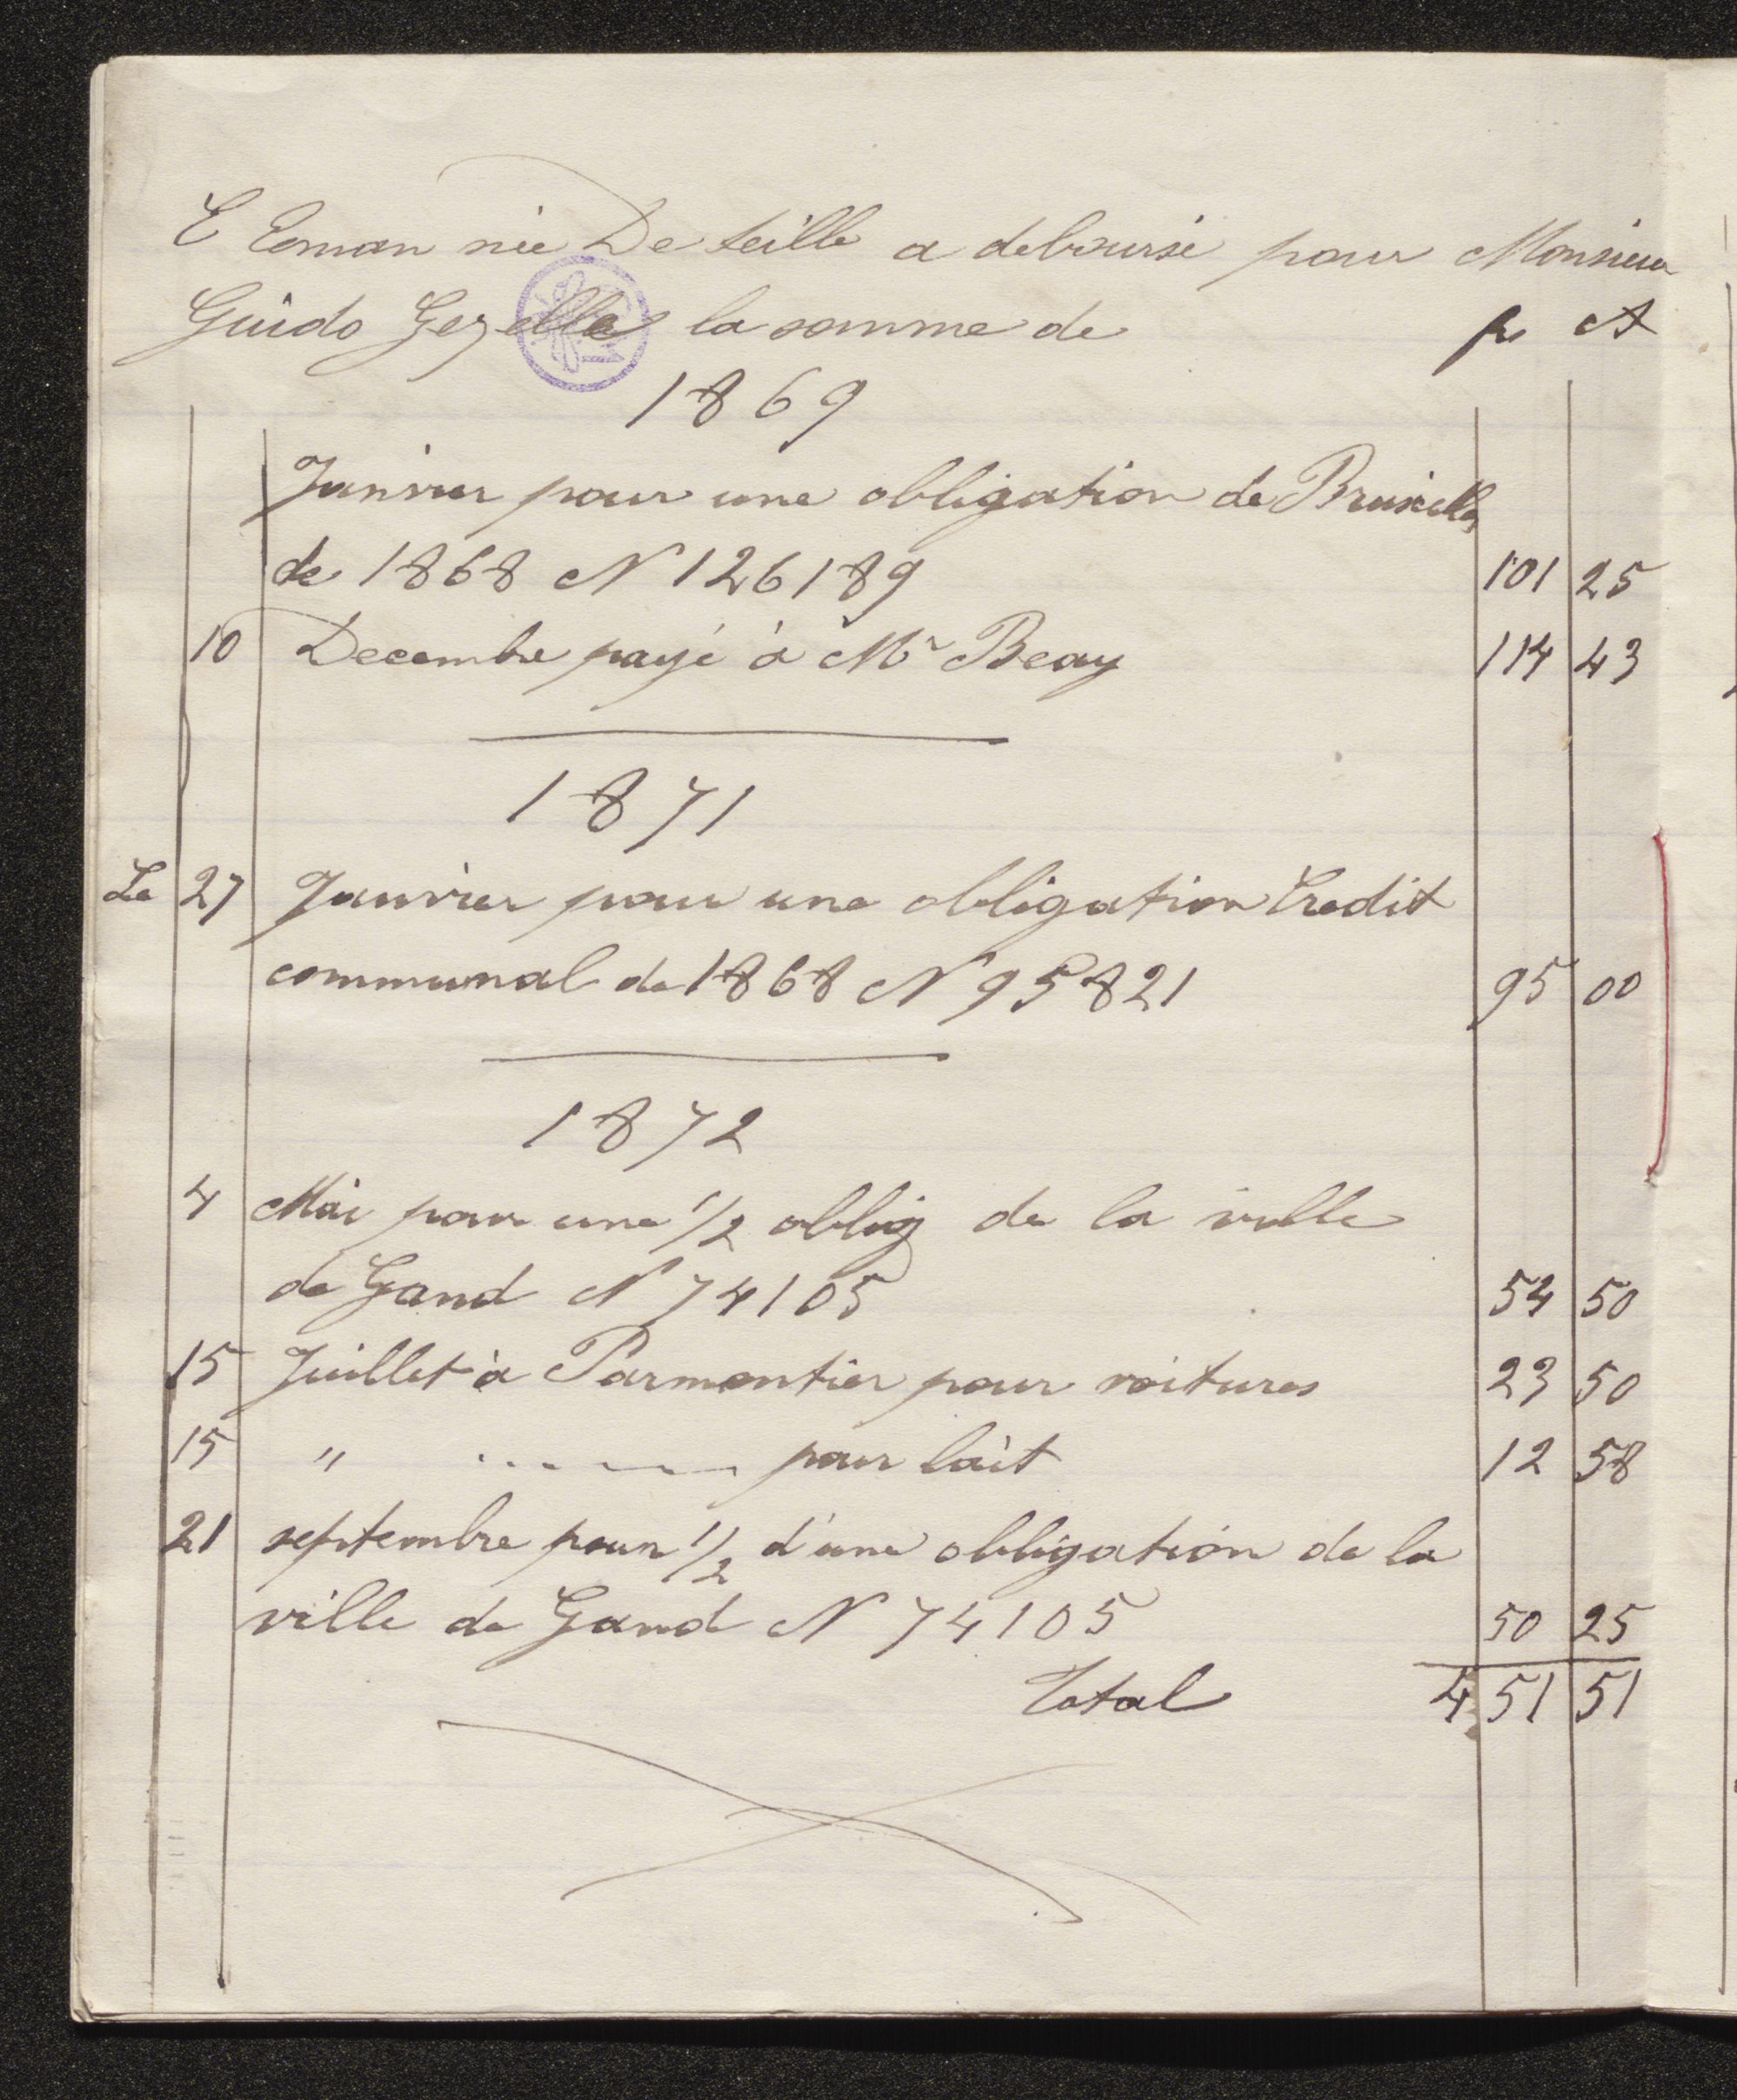 E Eeman née De Seille a deboursé pour Monsieur
Guido Gezelle la somme de fr ct
1869
Janvier pour une obligation de Bruxelles
de 1868 N 126189 101 25
10 Decembre payé à Mr Beay 114 43
1871
Le 27 Janvier pour une obligation Credit
communal de 1868 N 95821 95 00
1872
4 Mai pour une 1/2 oblig de la ville
de Gand N 74105 54 50
15 Juillet à Parmentier pour voitures 23 50
15 " pour lait 12 58
21 septembre pour 1/2 d'une obligation de la
ville de Gand N 74105 50 25
Total 451 51